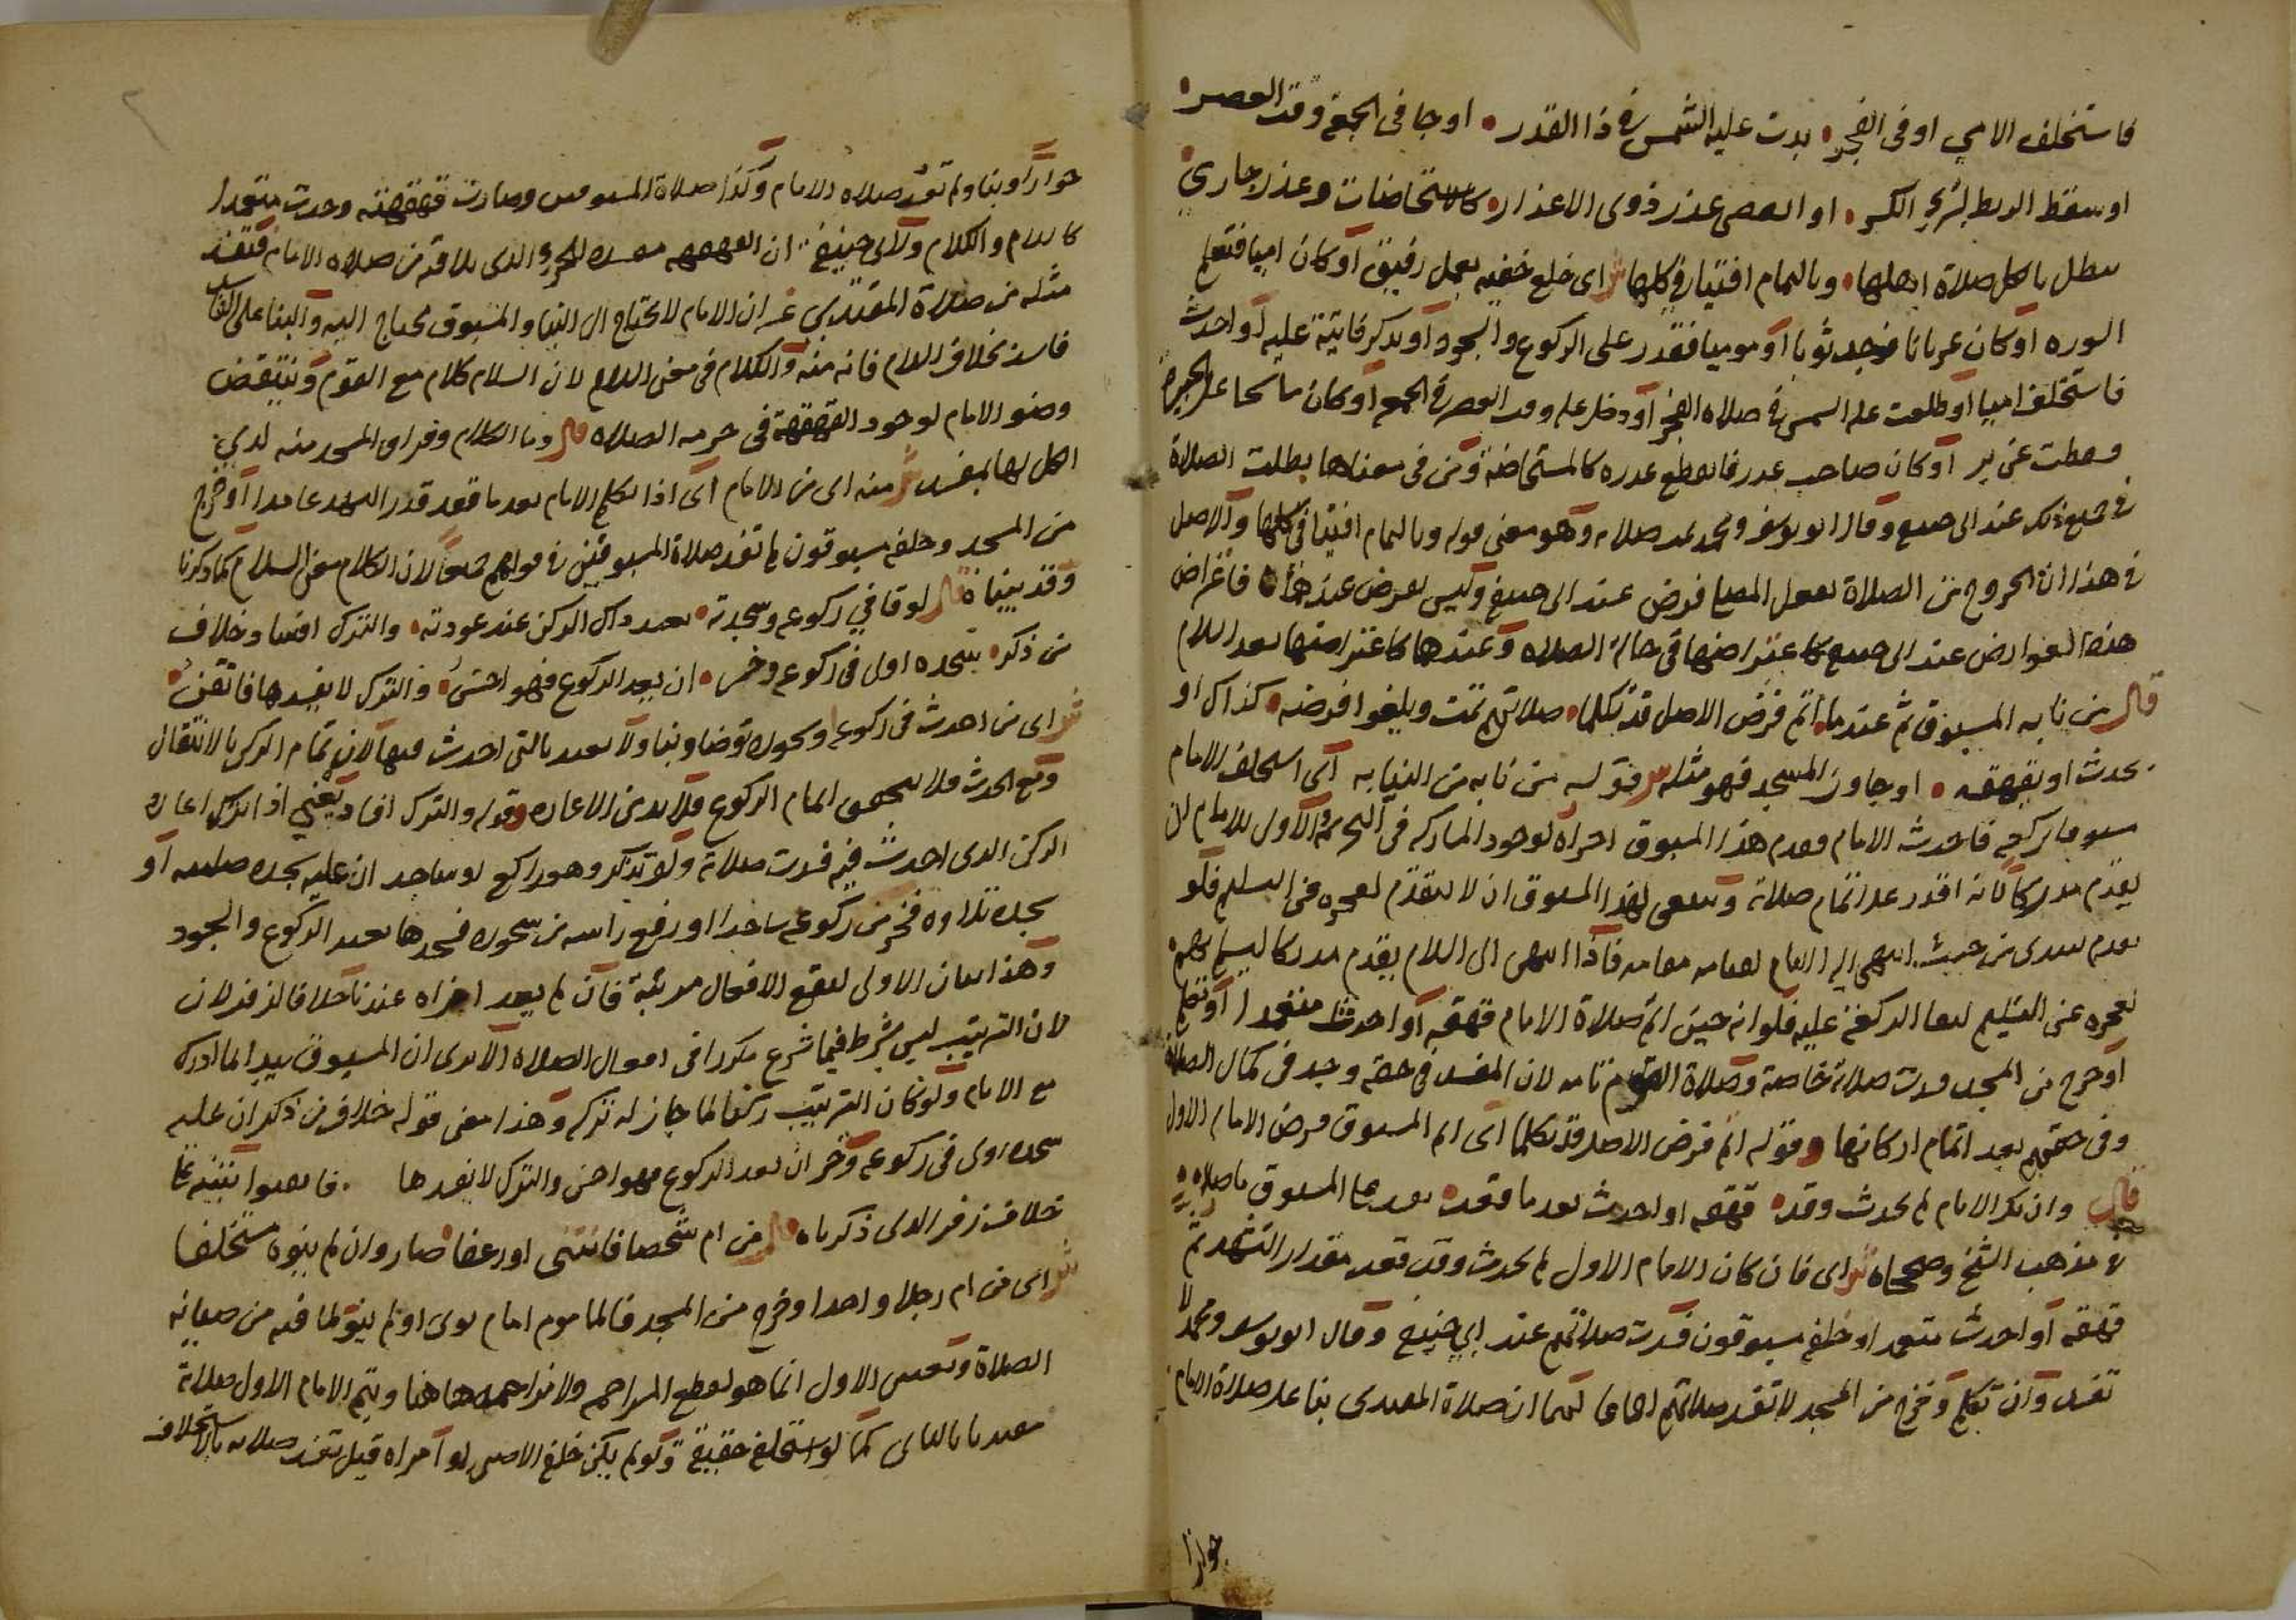 فاستخلف الامي او في الفجر بدت عليه الشمس في ذا القدر او جا في الجمعة وقت العصر
او سقط الربط لبرء الكسر او انقضى عذر ذوي الاعذار كالاستحاضات وعذر جاري
تبطل بالكل صلاة اهلها وبالتمام افتيا في كلها ش اي خلع خفيه بعمل رفيق او كان اميا فتعلم
السوره او كان عريانا فوجد ثوبا او موميا فقدر على الركوع والسجود او تذكر فايتة عليه او احدث
فاستخلف اميا او طلعت عليه الشمس في صلاه الفجر او دخل عليه وقت العصر في الجمعه او كان ماسحا على الجبيرة
وسقطت عن برء او كان صاحب عذر فانقطع عذره كالمستحاضة ومن في معناها بطلت الصلاة
في جميع ذلك عند ابي حنيفه وقال ابو يوسف ومحمد تمت صلاته وهو معنى قوله وبالتمام افتيا في كلها والاصل
في هذا ان الخروج من الصلاة بفعل المصلي فرض عند ابي حنيفه وليس بفرض عندهما فاعتراض
هذه العوارض عند ابي حنيفه كاعتراضها في حالة الصلاه وعندهما كاعتراضها بعد السلام
قال من نابه المسبوق ثم عندما اتم فرض الاصل قد تكلما صلاتهم تمت ويلغوا فرضه كذاك او
يحدث او يقهقه او جاوز المسجد فهو مثله ش قوله من نابه من النيابه اي استخلف الامام
مسبوقا بركعة فاحدث الامام وقدم هذا المسبوق اجزاه لوجود المشاركه في التحريمه والاولى للامام ان
يقدم مدركا لانه اقدر على اتمام صلاته وينبغي لهذا المسبوق ان لا يتقدم لعجزه عن التسليم فلو
تقدم يبتدي من حيث انتهى اليه الامام لقيامه مقامه فاذا انتهى الى السلام يقدم مدركا ليسلم بهم
لعجزه عن التسليم لبقا الركعة عليه فلو انه حين اتم صلاة الامام قهقه او احدث متعمدا او تكلم
او خرج من المسجد فسدت صلاته خاصة وصلاة القوم تامه لان المفسد في حقه وجد في كمال الصلاة
وفي حقهم بعد اتمام اركانها وقوله اتم فرض الاصل قد تكلما اي اتم المسبوق فرض الامام الاول
قال وان يكن الامام لم يحدث وقد قهقه او احدث بعد ما قعد يفسدها المسبوق
في مذهب الشيخ وصححاه ش اي فان كان الامام الاول لم يحدث وقد قعد مقدار التشهد ثم
قهقه او احدث متعمدا وخلفه مسبوقون فسدت صلاتهم عند ابي حنيفة وقال ابو يوسف ومحمد لا
تفسد وان تكلم وخرج من المسجد لا تفسد صلاتهم اجماعا لهما ان صلاة المقتدي بنا على صلاة الامام
جوازا
جوازا وبنا ولم تفسد صلاه الامام وكذا صلاة المسبوقين وصارت قهقهته وحدث متعمدا
كالسلام والكلام ولابي حنيفة ان القهقهه مفسده للجزو الذي يلاقيه من صلاه الامام فتفسد
مثله من صلاة المقتدي غير ان الامام لا يحتاج الى البنا والمسبوق محتاج اليه والبنا على الفاسد
فاسد بخلاف السلام فانه منه والكلام في معنى السلام لان السلام كلام مع القوم وينتقض
وضو الامام لوجود القهقهة في حرمه الصلاه قال وما الكلام وفراق المسجد منه لدي
الكل لها بمفسد ش منه اي من الامام اي اذا تكلم الامام بعد ما قعد قدر التشهد عامدا او خرج
من المسجد وخلفه مسبوقون لم تفسد صلاة المسبوقين في قولهم جميعا لان الكلام معنى السلام كما ذكرنا
وقد بيناه قال لو قافي ركوع وسجدته يعيد ذاك الركن عند عودته والترك افسا وخلاف
من ذكر سجده اول في ركوع وخر ان يعد الركوع فهو احسن والترك لا يفسدها فاتقنن
ش اي من احدث في ركوعه او سجوده توضا وبنا ولا يعتد بالتي احدث فيها لان تمام الركن بالانتقال
ومع الحدث فلا يتحقق اتمام الركوع فلا بد من الاعاده وقوله والترك افساد يعني اذا ترك اعاده
الركن الذي احدث فيه فسدت صلاته ولو تذكر وهو راكع او ساجد ان عليه سجده صلبيه او
سجده تلاوه فخر من ركوعه ساجدا او رفع راسه من سجوده فسجدها يعيد الركوع والسجود
وهذا بيان الاولى لتقع الافعال مرتبة فان لم يعد اجزاه عندنا خلافا لزفر لان
لان الترتيب ليس بشرط فيما شرع مكررا في افعال الصلاه الا يرى ان المسبوق يبدا بما ادرك
مع الامام ولو كان الترتيب ركنا لما جاز له تركه وهذا معنى قوله خلاف من ذكر ان عليه
سجده اولى في ركوعه وخر ان يعد الركوع فهو احسن والترك لا يفسدها
خلاف زفر الذي ذكرناه قال من ام شخصا فانتنى او رعفا صار وان لم ينوه مستخلفا
ش اي من ام رجلا واحدا وخرج من المسجد فالماموم امام نوى او لم ينو لما فيه من صيانه
الصلاة وتعيين الاول انما هو لقطع المزاحمه ولا مزاحمه هاهنا ويتم الامام الاول صلاته
مقتديا بالثاني كما لو استخلفه حقيقة ولو لم يكن خلفه الا صبي او امراه قيل تفسد صلاته بالاستخلاف